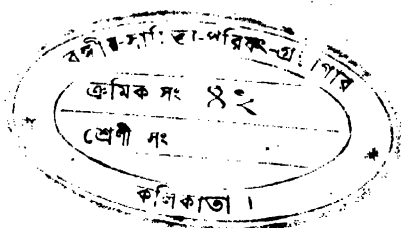 বঙ্গীয়-সাহিত্য-পরিষৎ-গ্রন্থাগার
ক্রমিক সং ৪২
শ্রেণী সং
কলিকাতা ।